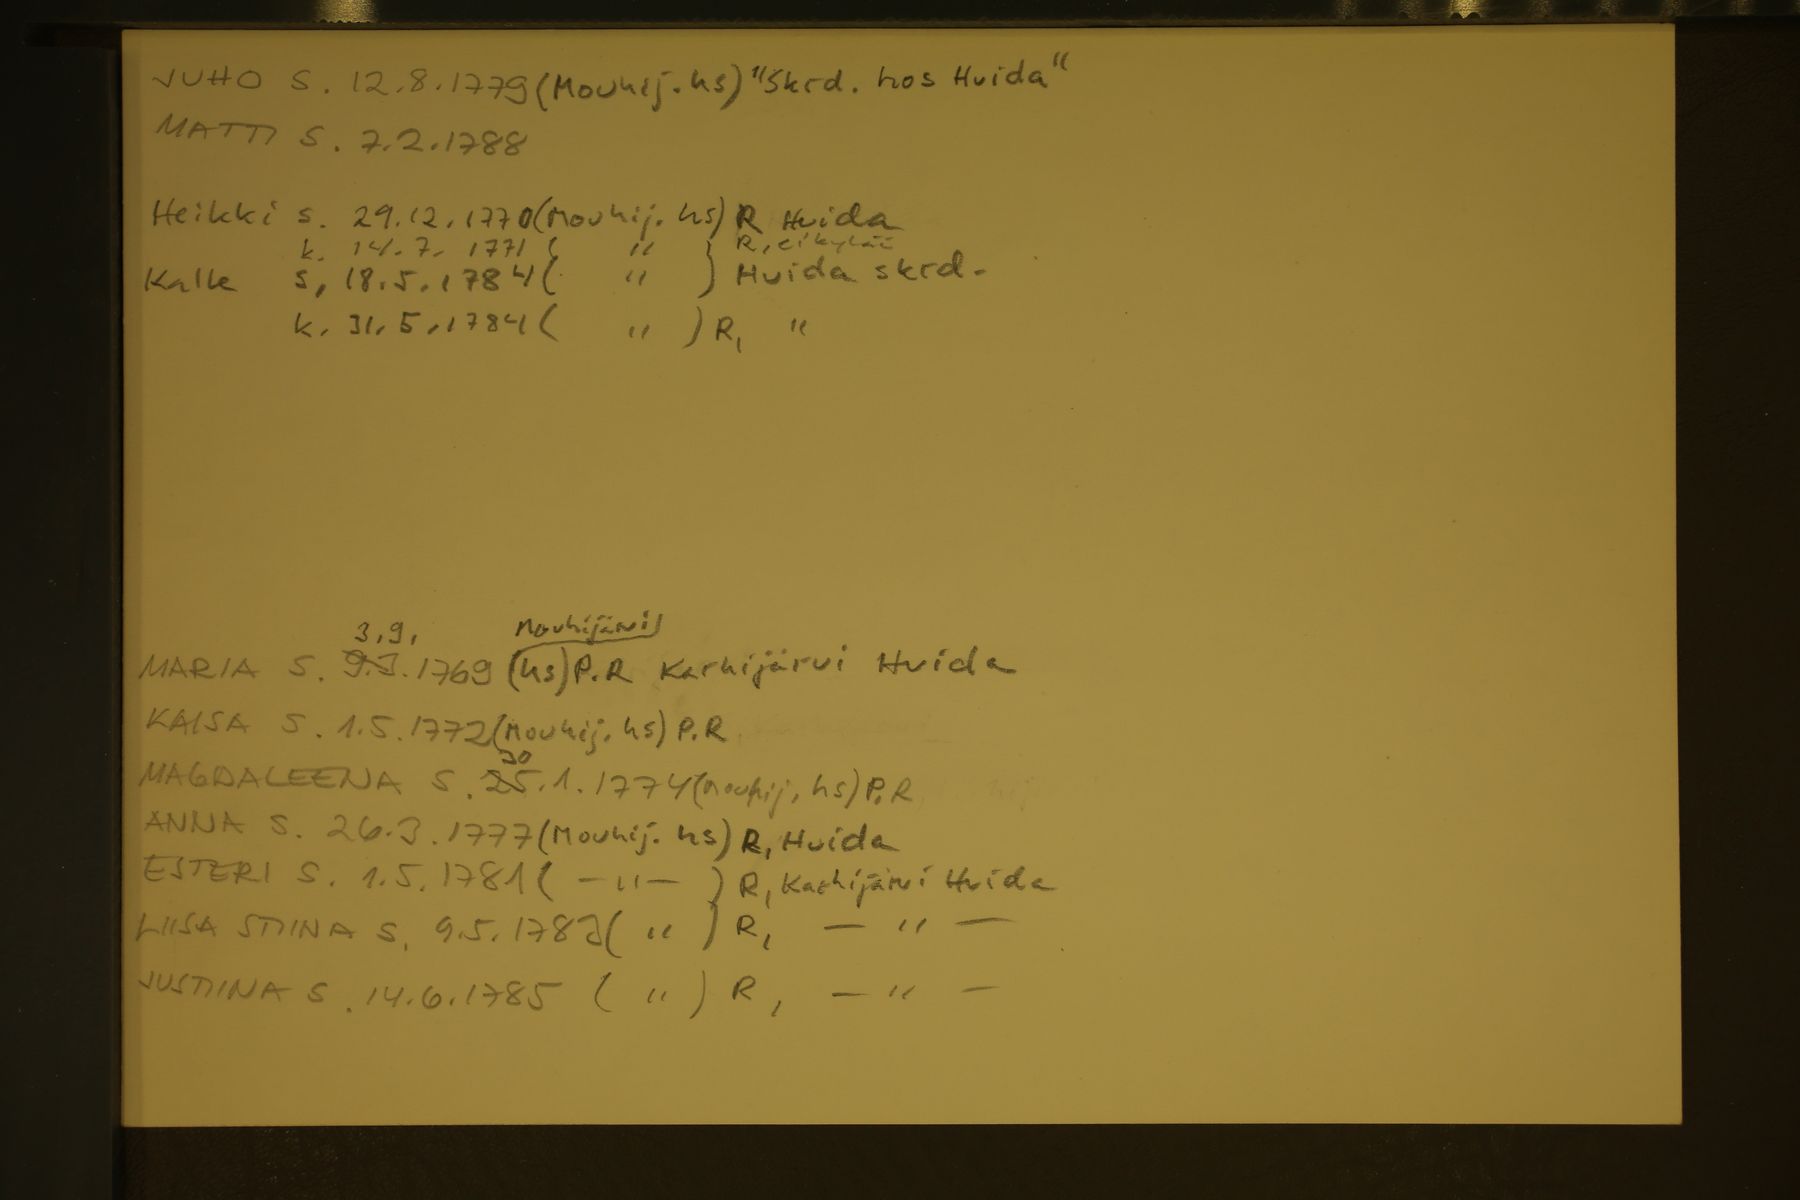 JUHO S. 12.8.1779 (Mouhij. hs) "Skrd. hos Huida"
MATTI S. 7.2.1788
Heikki s. 29.12.1770 (Mouhij. hs) R Huida
k. 14.7.1771 ( " ) R, ei kylää
Kalle s, 18.5.1784 ( " ) Huida skrd.
k. 31.5.1784 ( " ) R, "
3.9. Mouhijärvi
MARIA S. 9.3.1769 (hs) P.R Karhijärvi Huida
KAISA S. 1.5.1772 (Mouhij. hs) P.R
30
MAGDALEENA S. 25.1.1774 (Mouhij. hs) P.R
ANNA S. 26.3.1777 (Mouhij. hs) R, Huida
ESTERI S. 1.5.1781 ( — " — ) R, Karhijärvi Huida
LIISA STIINA S. 9.5.1783 ( " ) R, — " —
JUSTIINA S. 14.6.1785 ( " ) R, — " —